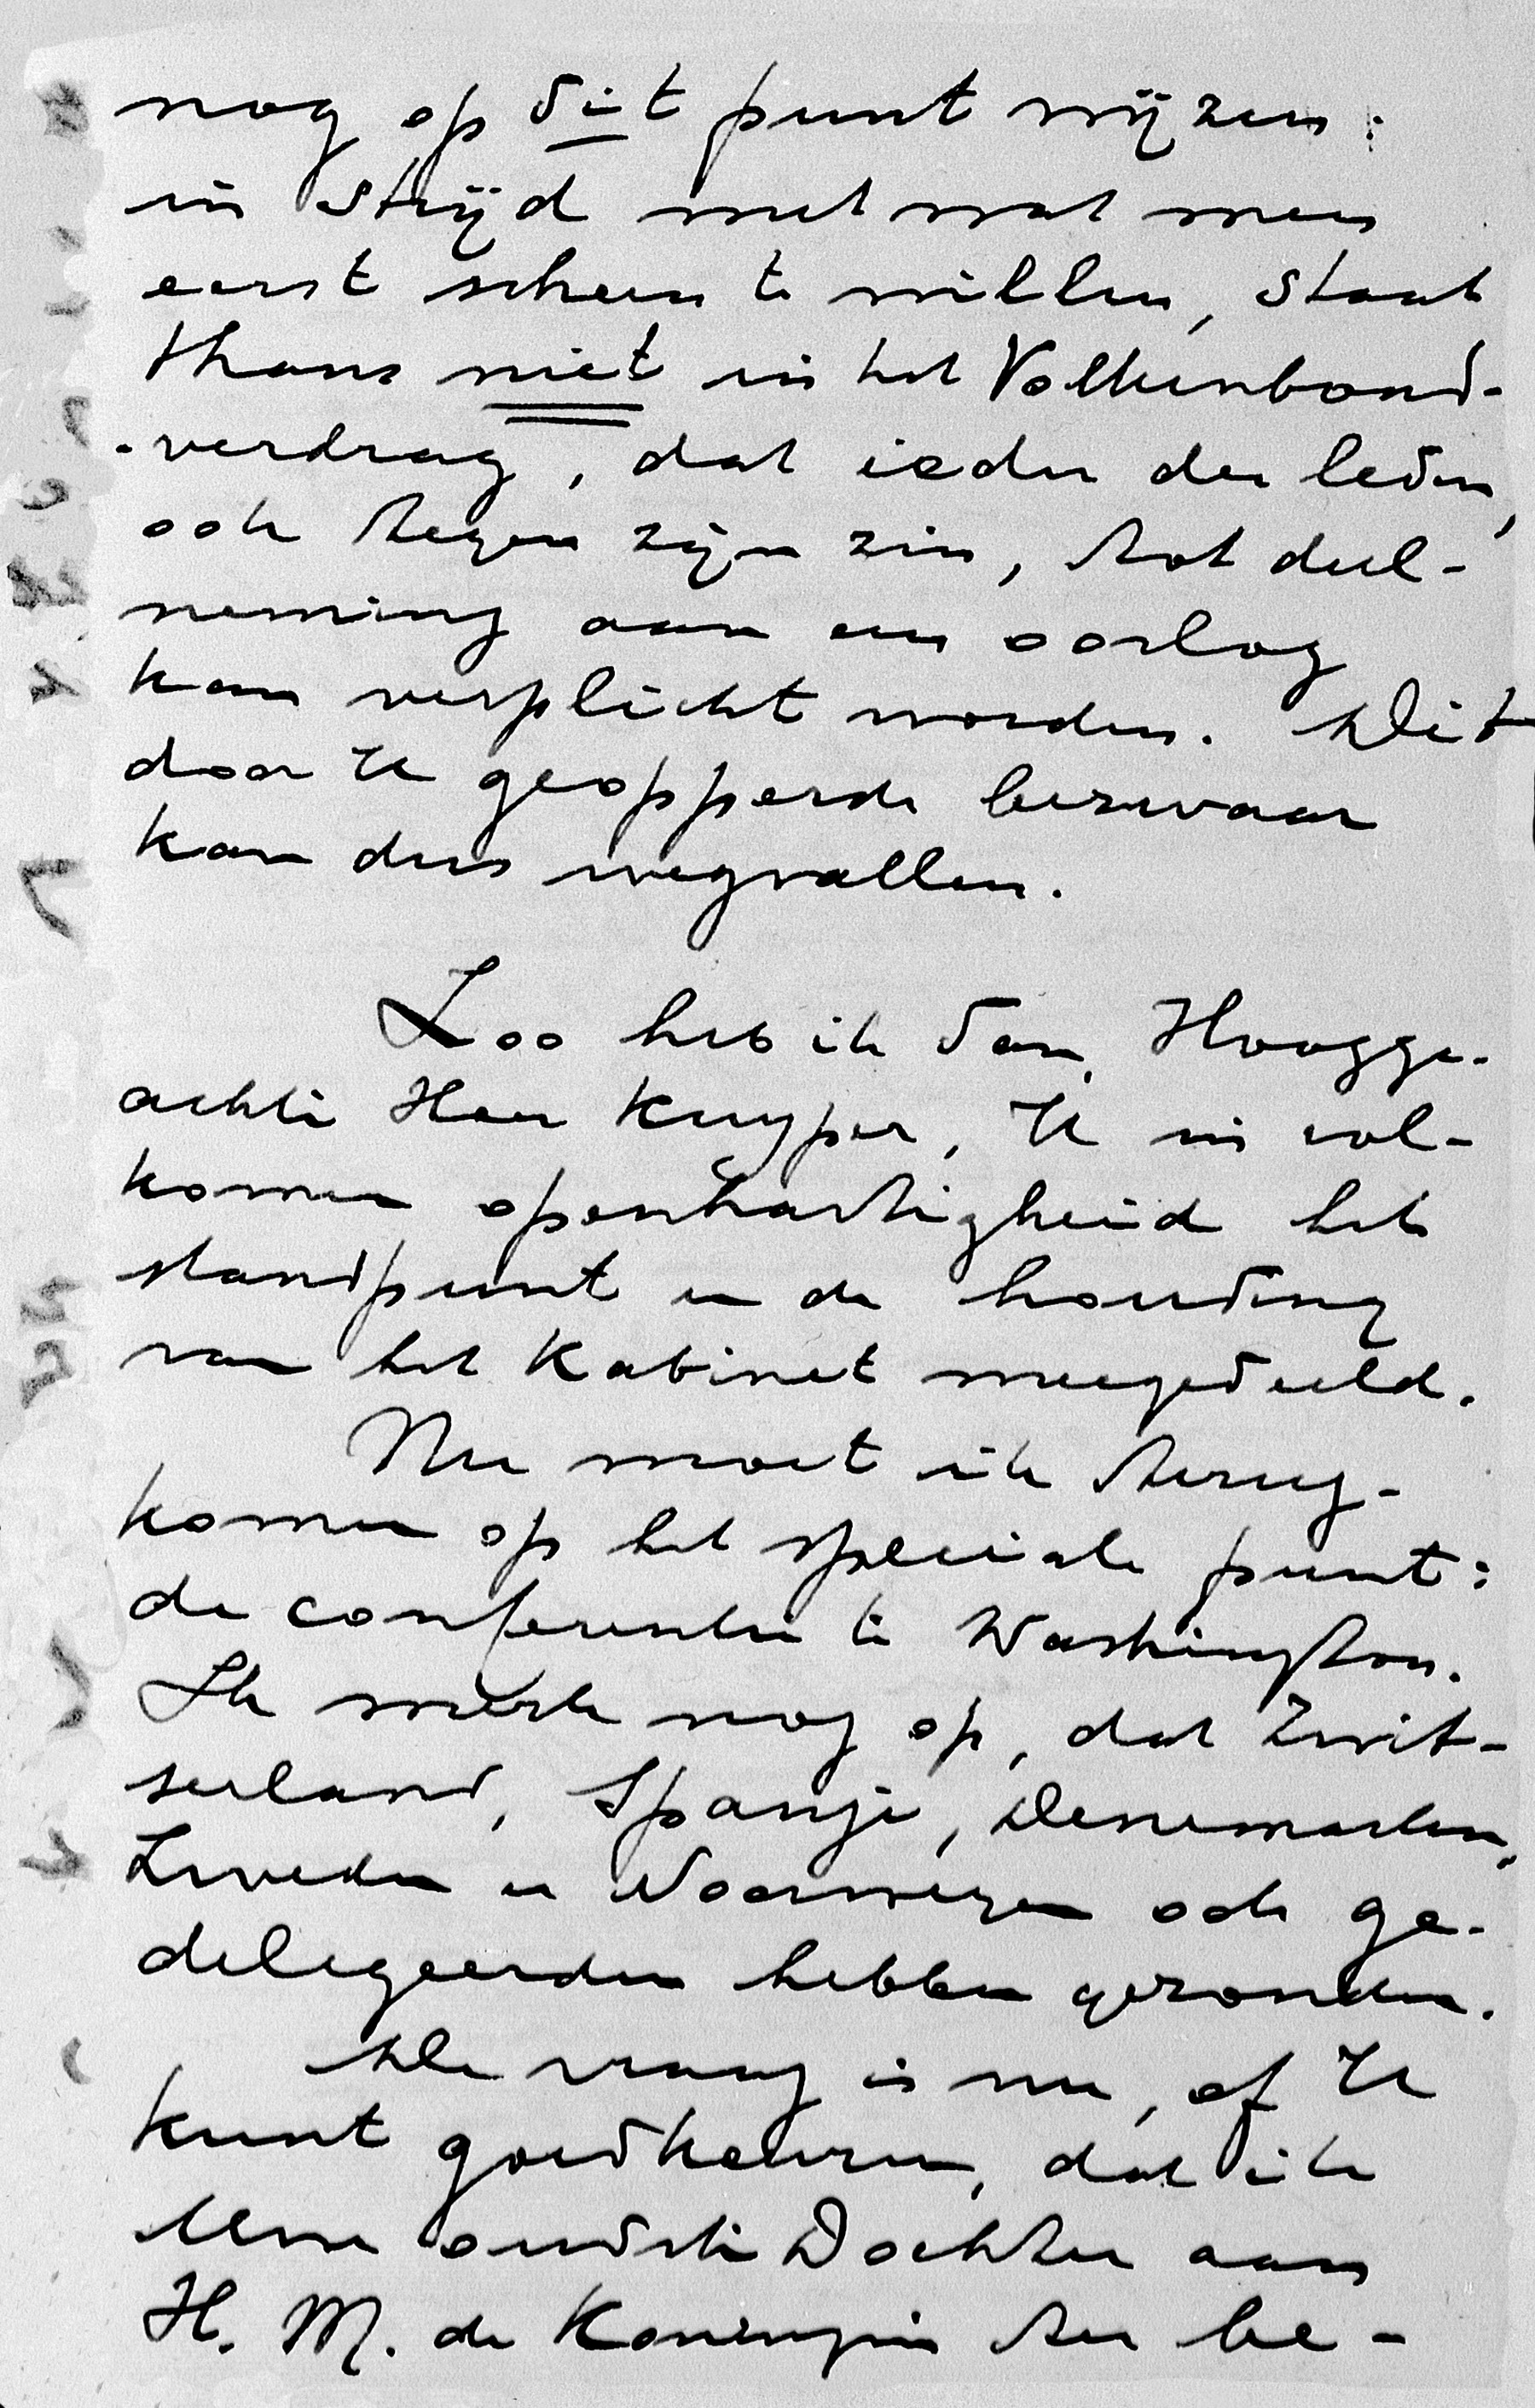 nog op dit punt wijzen:
in strijd met wat men
eerst scheen te willen, staat
thans niet in het Volkenbond-
-verdrag, dat ieder der leden,
ook tegen zijn zin, tot deel-
neming aan een oorlog
kan verplicht worden. Dit
door U geopperde bezwaar
kan dus wegvallen.
Zoo heb ik dan, Hoogge-
achte Heer Kuyper, U in vol-
komen openhartigheid het
standpunt en de houding
van het Kabinet meegedeeld.
Nu moet ik terug-
komen op het speciale punt:
de conferentie te Washington.
Ik merk nog op, dat Zwit-
serland, Spanje, Denemarken,
Zweden en Noorwegen ook ge-
delegeerden hebben gezonden.
De vraag is nu, of U
kunt goedkeuren, dat ik
Uwe oudste Dochter aan
H. M. de Koningin ter be-